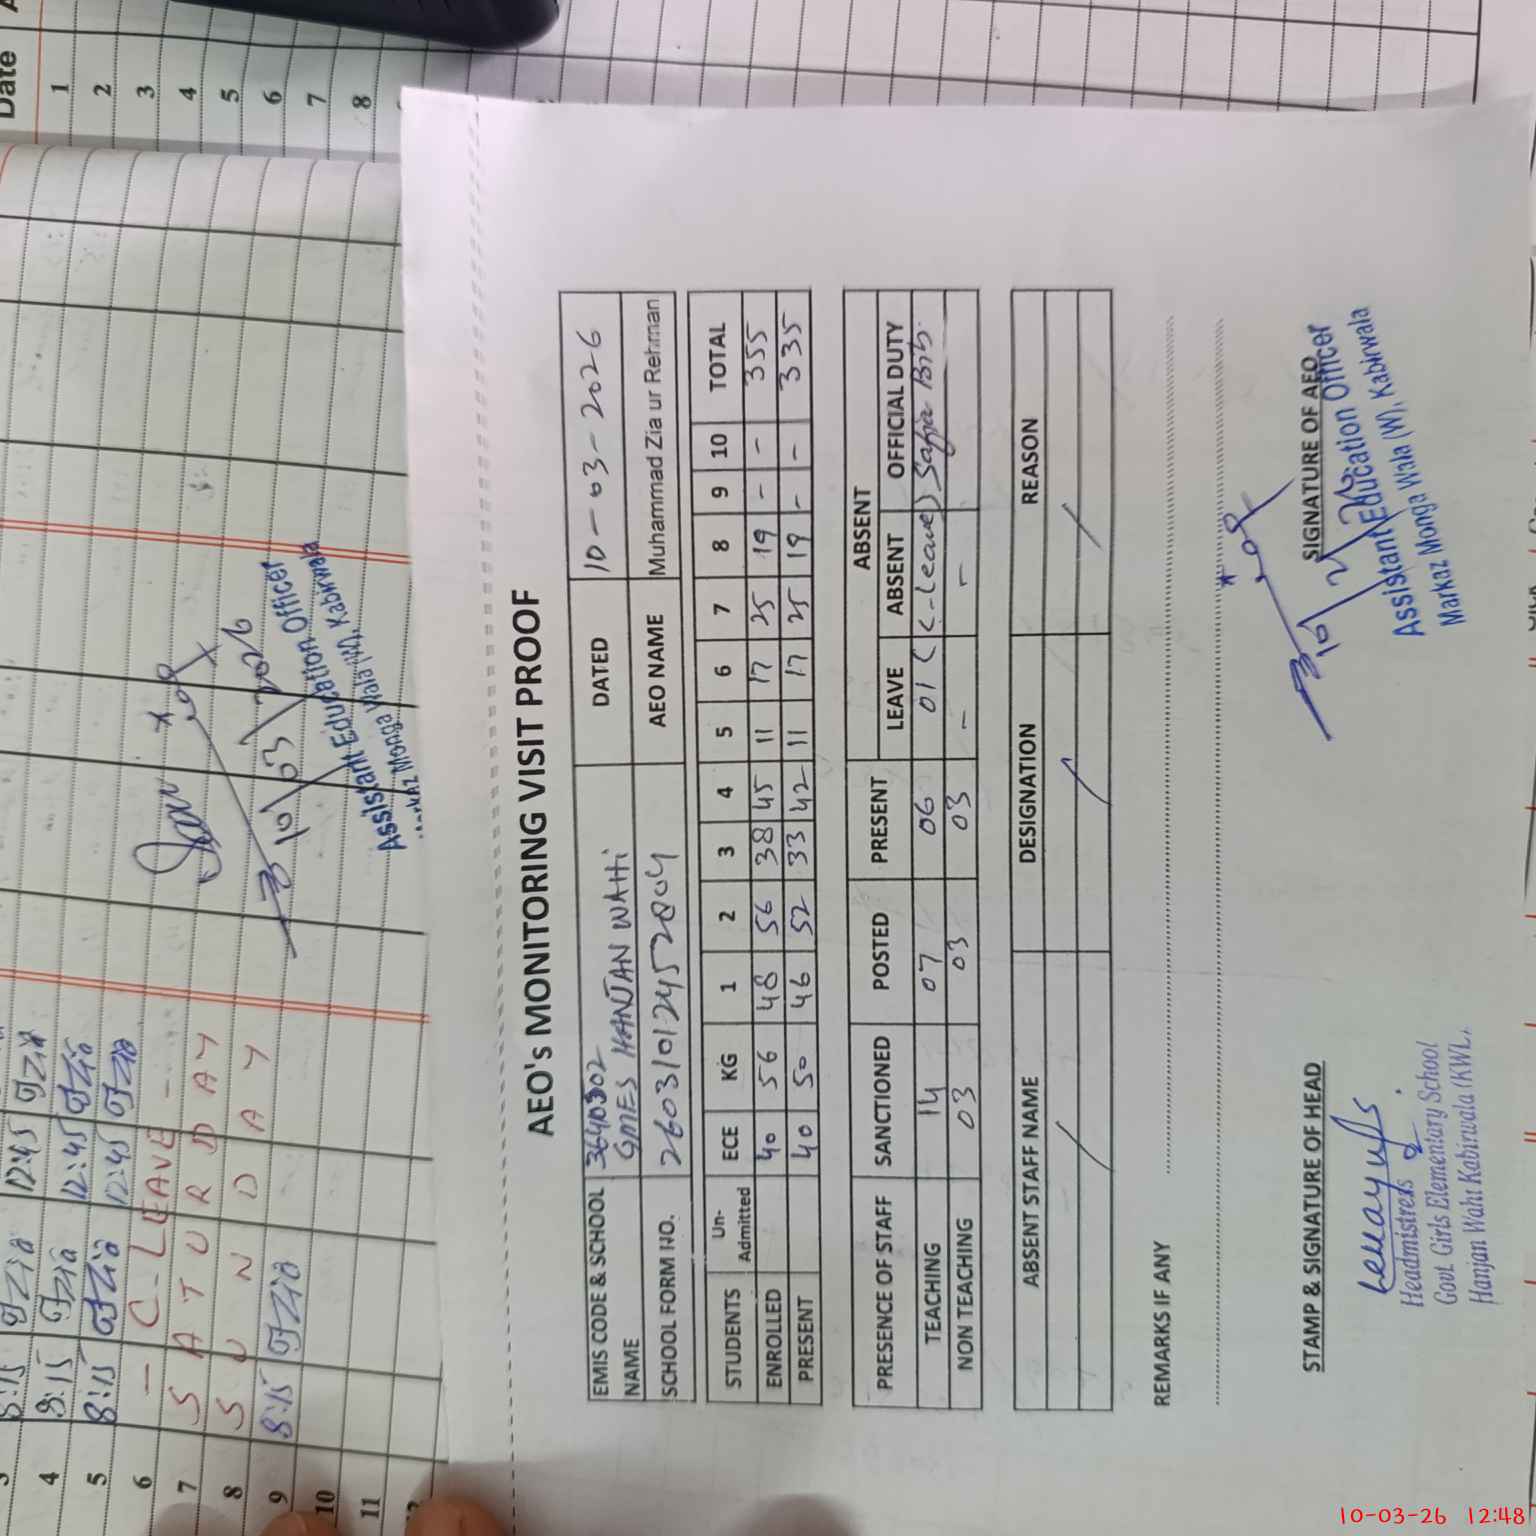 AEO's MONITORING VISIT PROOF
EMIS CODE & SCHOOL NAME 36440302 GMES HANJAN WAHI DATED 10-03-2026
SCHOOL FORM NO. 26031012452804 AEO NAME Muhammad Zia ur Rehman
STUDENTS Un-Admitted ECE KG 1 2 3 4 5 6 7 8 9 10 TOTAL
ENROLLED 40 56 48 56 38 45 11 17 25 19 - - 355
PRESENT 40 50 46 52 33 42 11 17 25 19 - - 335
PRESENCE OF STAFF SANCTIONED POSTED PRESENT ABSENT
LEAVE ABSENT OFFICIAL DUTY
TEACHING 14 07 06 01 (C-Leave) Safia Bibi
NON TEACHING 03 03 03 - -
ABSENT STAFF NAME DESIGNATION REASON
REMARKS IF ANY
STAMP & SIGNATURE OF HEAD SIGNATURE OF AEO
Headmistress
Govt. Girls Elementary School
Hanjan Waht Kabirwala (KWL).
10/
Assistant Education Officer
Markaz Monga Wala (W), Kabirwala
Date
1
2
3
4
5
6
7
8
12:45
4 8:15 12:45
5 8:15 12:45
6 - C-LEAVE -
7 SATURDAY
8 SUNDAY
9 8:15
10
11
10/03/2026
Assistant Education Officer
Markaz Monga Wala (W), Kabirwala
10-03-26 12:48